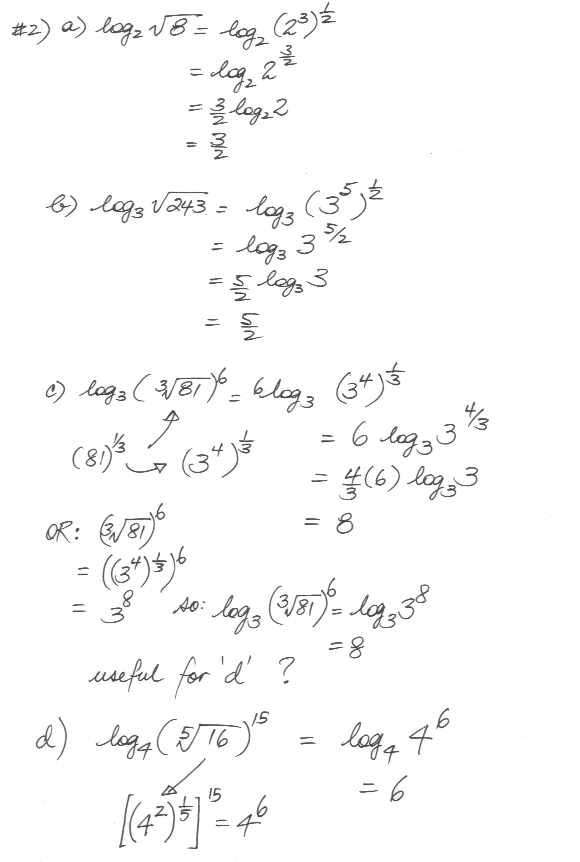 #2) a) log₂ √8 = log₂ (2³)^½
= log₂ 2^(3/2)
= 3/2 log₂ 2
= 3/2
b) log₃ √243 = log₃ (3⁵)^½
= log₃ 3^(5/2)
= 5/2 log₃ 3
= 5/2
c) log₃ (∛81)⁶ = 6 log₃ (3⁴)^⅓
(81)^⅓ → (3⁴)^⅓ = 6 log₃ 3^(4/3)
= 4/3 (6) log₃ 3
OR: (∛81)⁶ = 8
= ((3⁴)^⅓)⁶
= 3⁸ so: log₃ (∛81)⁶ = log₃ 3⁸
= 8
useful for 'd' ?
d) log₄ (⁵√16)¹⁵ = log₄ 4⁶
= 6
[(4²)^(1/5)]¹⁵ = 4⁶